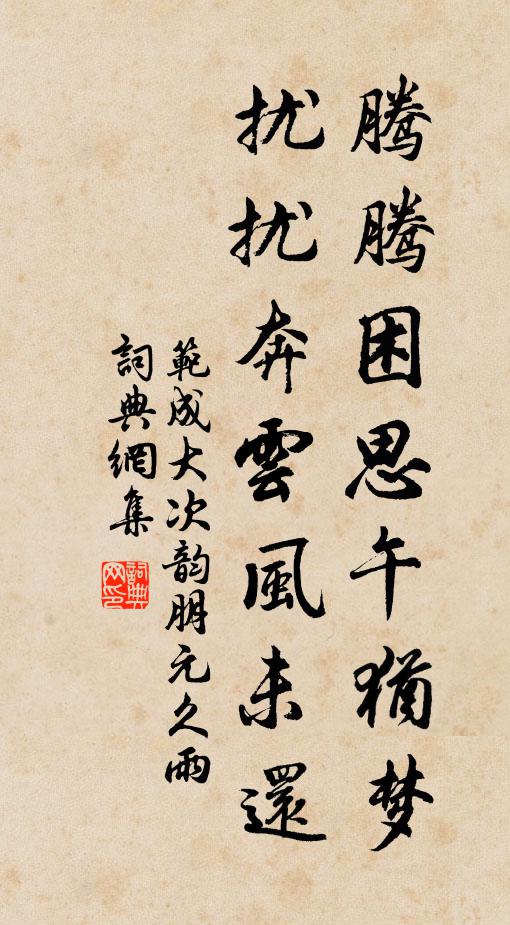 騰騰困思午猶梦
扰扰奔雲風未還
範成大次韵朋元久雨
詞典網集
詞典网印